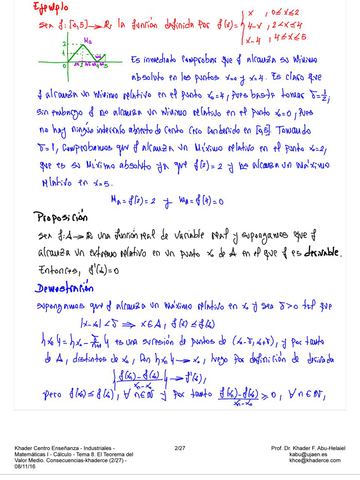 Ejemplo
Sea f: [0,5] → R la función definida por f(x) = { x , 0≤x≤2
4-x , 2≤x≤4
x-4 , 4≤x≤5
Es inmediato comprobar que f alcanza su mínimo
absoluto en los puntos x=0 y x=4. Es claro que
f alcanza un mínimo relativo en el punto x₀=4, pues basta tomar
sin embargo f no alcanza un mínimo relativo en el punto x₀=0, pues
no hay ningún intervalo abierto de centro cero contenido en [0,5]. Tomando
comprobamos que f alcanza un máximo relativo en el punto x=2,
que es su máximo absoluto ya que f(2)=2 y no alcanza un máximo
relativo en x=5.
Mₐ = f(2) = 2 y mₐ = f(0) = 0
Proposición
Sea f: A → R una función real de variable real y supongamos que f
alcanza un extremo relativo en un punto x₀ de A en el que f es derivable.
Entonces, f'(x₀)=0
Demostración
Supongamos que f alcanza un máximo relativo en x₀ y sea δ>0 tal que
|x-x₀|<δ ⟹ x∈A, f(x)≤f(x₀)
es una sucesión de puntos de (x₀-δ, x₀+δ), y por tanto
de A, distintos de x₀, con {xₙ} → x₀, luego por definición de derivada
{ (f(xₙ)-f(x₀))/(xₙ-x₀) } → f'(x₀),
pero f(xₙ)≤f(x₀), ∀n∈N y por tanto (f(xₙ)-f(x₀))/(xₙ-x₀) ≥ 0, ∀n∈N,
Khader Centro Enseñanza - Industriales -
Matemáticas I - Cálculo - Tema 8. El Teorema del
Valor Medio. Consecuencias-khaderce (2/27) -
08/11/16
2/27
Prof. Dr. Khader F. Abu-Helaiel
kabu@ujaen.es
khce@khaderce.com